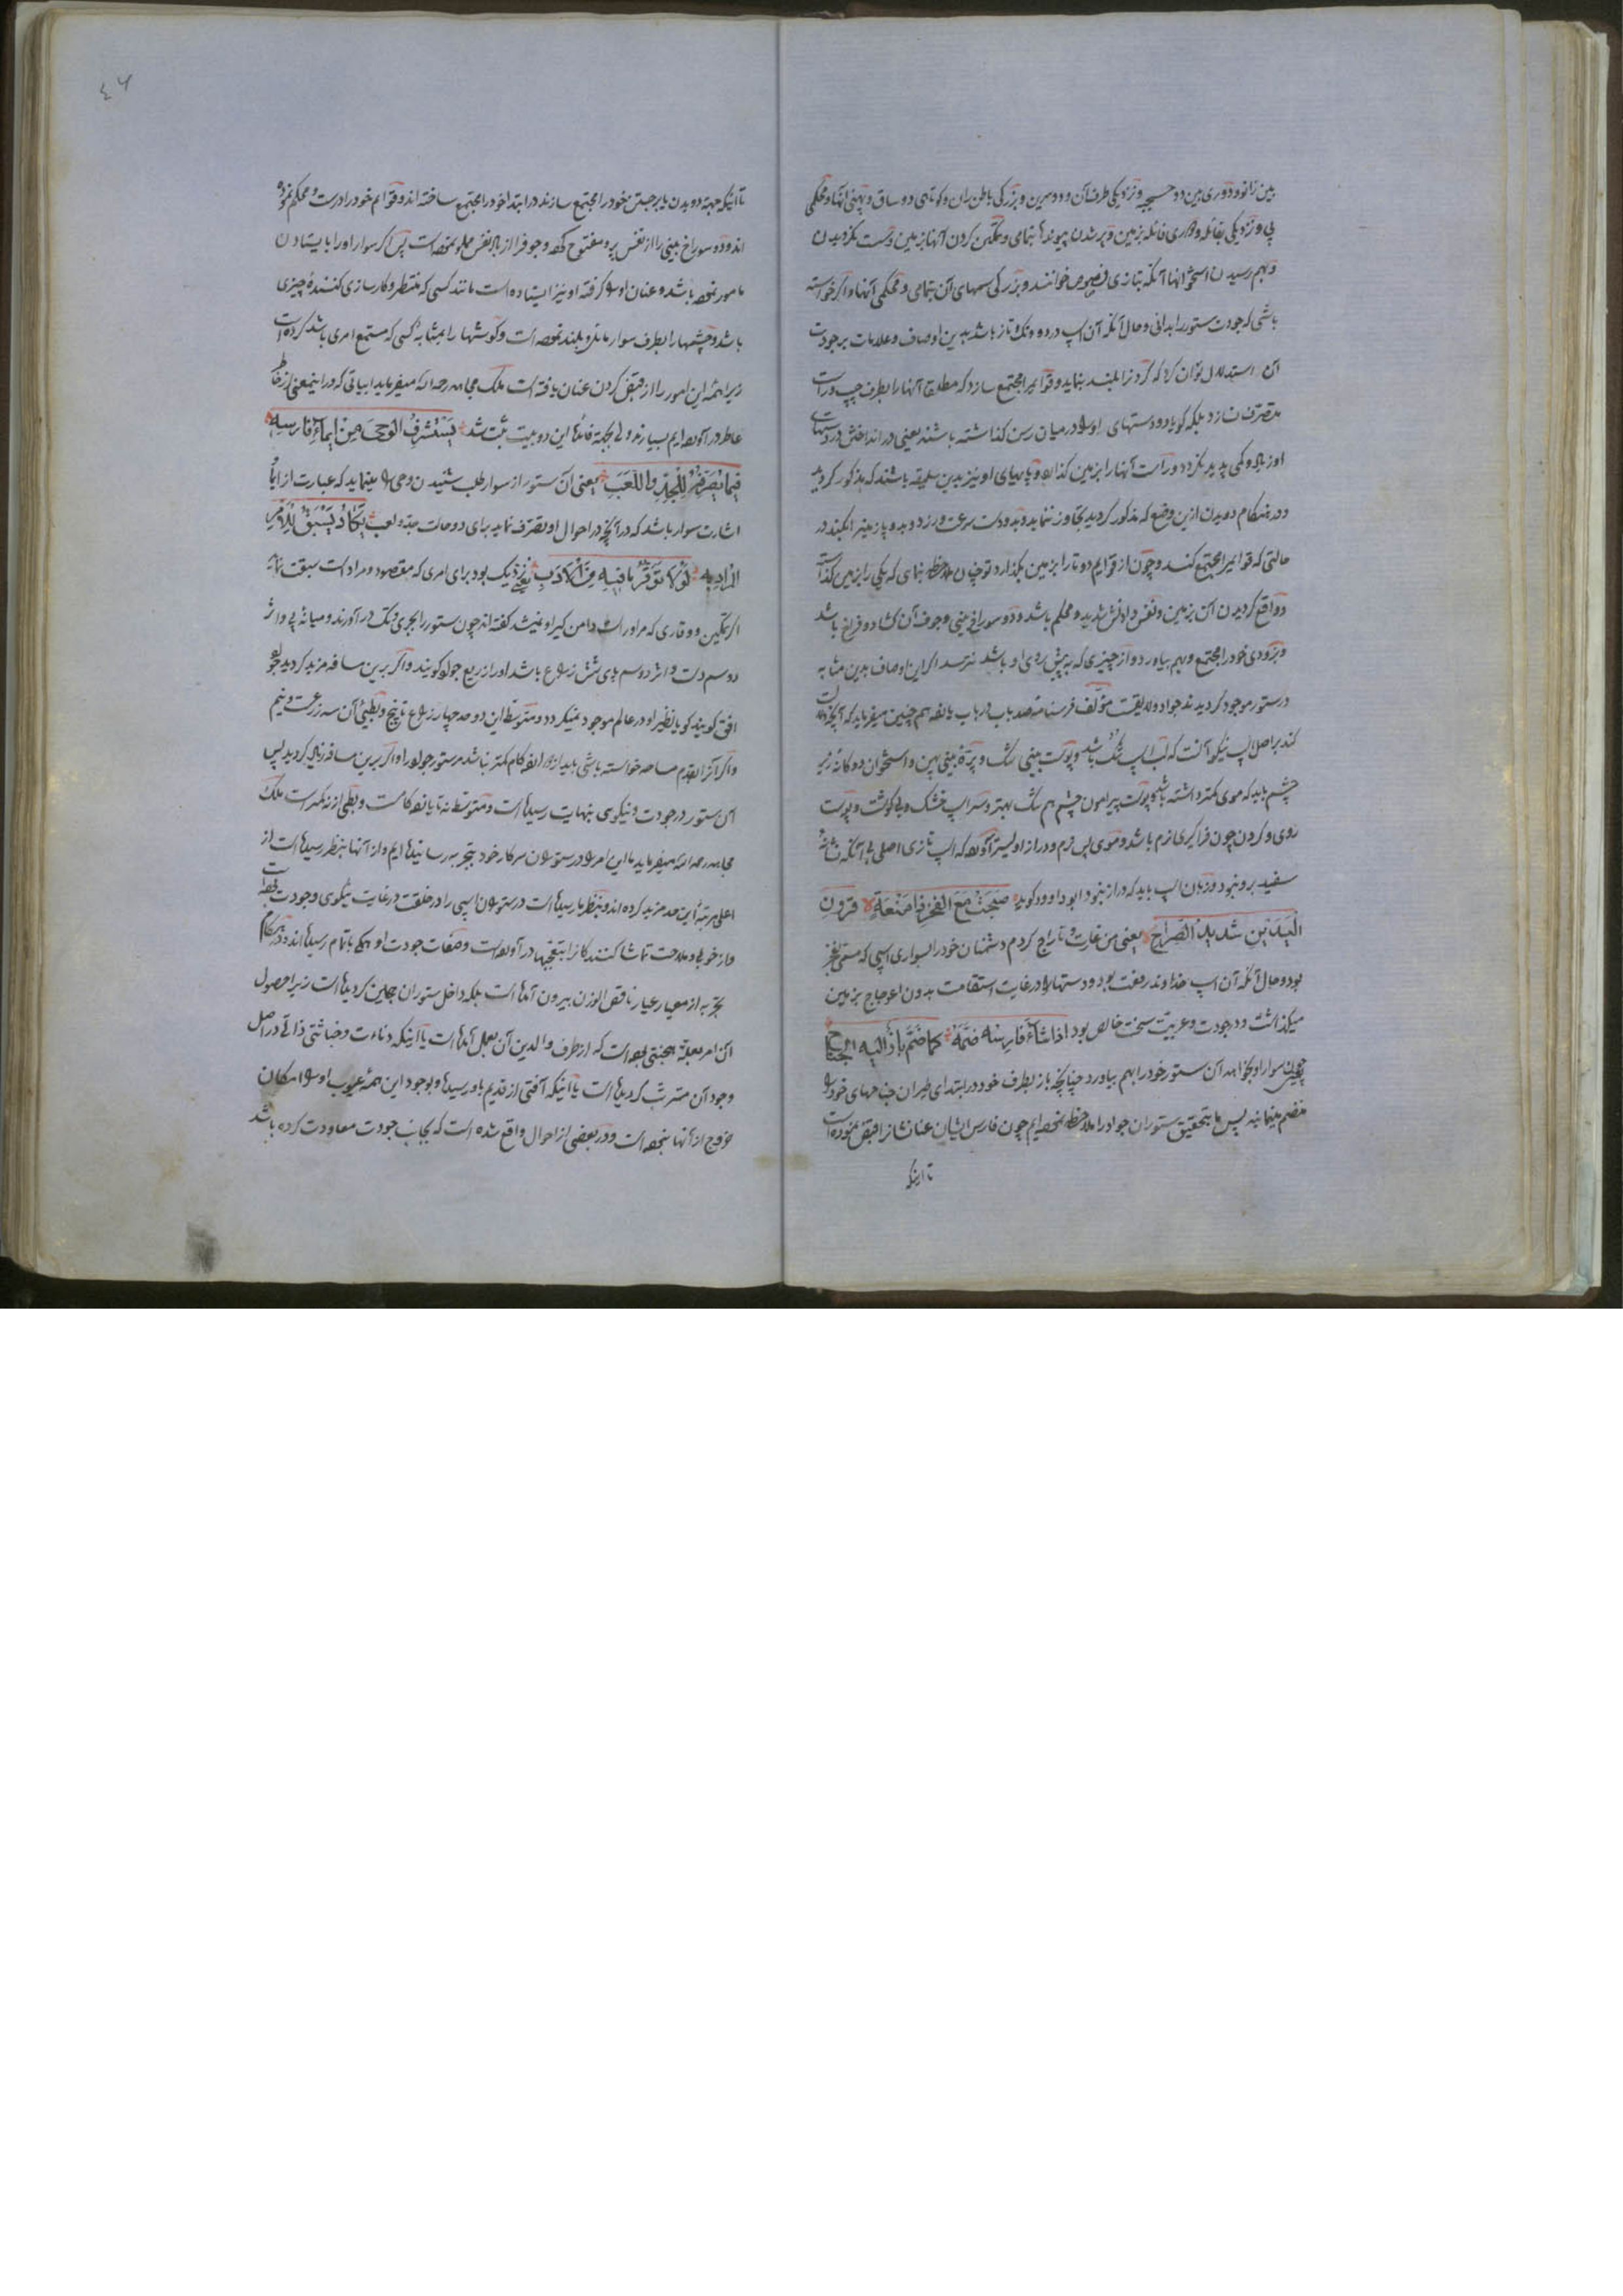 بین زانو و دوری بین دو و نزدیکی طرف آن و دو سرین و بزرکی باطن ران و کوتاهی دو ساق و پهنی آنها و محکمی
پی و نزدیکی بزمین و پر شدن پیوندها بتمامی و متمکن کردن آنها بزمین و سست نکردیدن
و بهم رسیدن استخوانها آنکه بتازی خوانند و بزرکی سمهای آن بتمامی و محکمی آنها و اکر خواسته
باشی که جودت ستور را بدانی و حال آنکه آن اسپ در دو و تک تاز باشد بدین اوصاف و علامات بر جودت
آن استدلال توان کرد که کردن را بلند نماید و قوایم را مجتمع سازد که مطلقا آنها را بطرف چپ و راست
متصرف نسازد بلکه کویا دو دستهای او را در میان رسن کذاشته باشند یعنی در انداختن دستهای
او زیاده و کمی پدید نکردد و راست آنها را بزمین کذارد و پاهای او نیز بدین سلیقه باشند که مذکور کردید
و در هنکام دویدن ازین وضع که مذکور کردید تجاوز ننماید و بدو دست سرعت ورزد و بدو پا زمین را بکند در
حالتی که قوایم را مجتمع کند و چون از قوایم دو تا را بزمین بکذارد تو چنان ملاحظه نمای که یکی را بزمین کذاشته
و واقع کردیدن آن بزمین و نفس دادنش شدید و محکم باشد و دو سوراخ بینی و جوف آن کشاد و فراخ باشد
و بزودی خود را مجتمع و بهم بیاورد و از چیزی که به پیش روی او باشد نترسد اکر این اوصاف بدین مثابه
در ستور موجود کردیدند جواد و مؤلف فرسنامه صد باب در باب هم چنین میفرماید که آنچه دلالت
کند بر اصل اسپ نیکو آنست که لب اسپ تنک باشد و پوست بینی تنک و پره بینی پهن و استخوان دوکانه زیر
چشم باید که موی کمتر داشته باشد و پوست پیرامون چشم هم تنک بهتر و سر اسپ خشک و بی کوشت و پوست
روی و کردن چون فراکیری نرم باشد و موی اسپ نرم و دراز اولیتر که اسپ تازی اصلی بی آنکه نشانه
سفید برو نبود و زبان اسپ باید که دراز نبود ابو داوود کوید صبحت مع الفجر ذا منعة قرون
الیدین شدید الصراح یعنی من غارت و تاراج کردم دشمنان خود را بسواری اسپی که
بود و حال آنکه آن اسپ خداوند رفعت بود و دستها را در غایت استقامت بدون اعوجاج بزمین
میکذاشت و در جودت و عربیت سخت خالص بود اذا شاء فارسه ضمه کما ضم باز الیه الجناح
یعنی چون سوار او بخواهد آن ستور خود را بهم بیاورد چنانچه باز بطرف خود در ابتدای طیران جناحهای خود را
منضم مینماید پس ما بتحقیق ستوران جواد را ملاحظه نموده ایم چون فارس ایشان عنان را قبض نموده است
تا اینکه
٤٦
تا اینکه جهة دویدن یا برجستن خود را مجتمع سازند در ابتدا خود را مجتمع ساخته اند و قوایم خود را درست و محکم نموده
اند و دو سوراخ بینی را از نفس پر و مفتوح کرده و جوف را از باد نفس مملو نموده است پس اکر سوار او را بایستادن
مامور نموده باشد و عنان او را کرفته او نیز ایستاده است مانند کسی که منتظر و کارسازی کننده چیزی
باشد و چشمها را بطرف سوار مایل و بلند نموده است و کوشها را بمثابه کسی که مستمع امری باشد کرده است
زیرا همه این امور را از قبض کردن عنان یافته است ملک مجاهد رحمه الله میفرماید ابیاتی که در اینمعنی از خاطر
عاطر در آورده ایم بسیارند ولی بجهة فایده این دو بیت ثبت شد یستشرف الوحی من ایماء فارسه
فیما یصرفه للجد واللعب یعنی آن ستور از سوار طلب شنیدن وحی را مینماید که عبارت از ایما
اشارت سوار باشد که در آنچه در احوال او تصرف نماید برای دو حالت جد و لعب یکاد یسبق للامر
المراد به لولا توقر ما فیه من الادب یعنی نزدیک بود برای امری که مقصود و مراد است سبقت نماید
اکر تمکین و وقاری که مر او راست دامن کیر او نمیشد کفته اند چون ستور را بجری و تک در آورند و میانه پی و اثر
دو سم دست و اثر دو سم پای شش زراع باشد او را زریع جواد کویند و اکر برین مسافه مزید کردید جواد
افق کویند کویا نظیر او در عالم موجود نمیکردد و متوسط این دو حد چهار زراع تا پنج و بطیئ آن سه زرع و نیم
و اکر آنرا بقدم مساحه خواسته باشی باید از کام کمتر نباشد مر ستور جواد را و اکر برین مسافه زیاد کردید پس
آن ستور در جودت و نیکوی بنهایت رسیده است و متوسط نه تا یازده کامست و بطی از نه کمتر است ملک
مجاهد رحمه الله میفرماید ما این امر را در ستوران سرکار خود بتجربه رسانیده ایم و از آنها بنظر رسیده است از
اعلی مرتبه این حد مزید کرده اند و بنظر ما رسیده است در ستوران اسپی را در خلقت در غایت نیکوی و جودت بوده است
و از خوبی و ملاحت تماشا کنندکان را بتعجبها در آورده است و صفات جودت او همکی باتمام رسیده اند و در هنکام
تجربه از معیار عیار ناقص الوزن بیرون آمده است بلکه داخل ستوران هجین کردیده است زیرا حصول
آن امر بعلة هجنتی بوده است که از طرف والدین آن بعمل آمده است یا اینکه دناءت و خباثتی ذاتی در اصل
وجود آن مترتب کردیده است یا آنیکه آفتی از قدیم باو رسیده و با وجود این همه عیوب او را امکان
خروج از آنها نبوده است و در بعضی از احوال واقع شده است که بجانب جودت معاودت کرده باشد